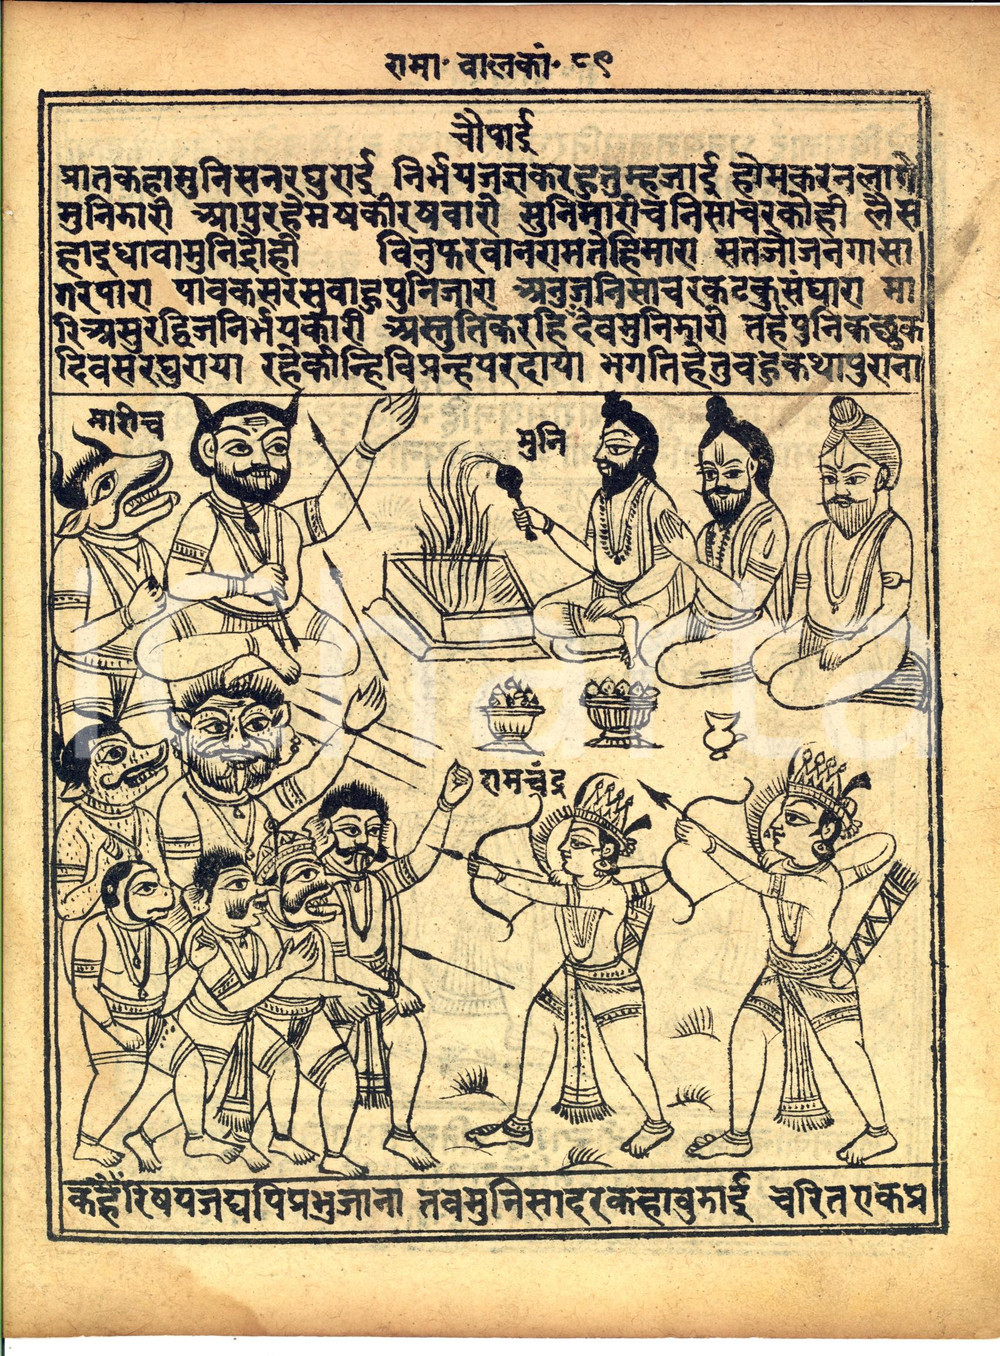 रामा॰ वालकां॰ ८९
चौपाई
प्रातकहामुनिसनरघुराई निर्भयजज्ञकरहुतुम्हजाई होमकरनलागे
मुनिझारी आपुरहेमषकीरषवारी सुनिमारीचनिसाचरकोही लैस
हाइधावामुनिद्रोही विनुफरवानरामतेहिमारा सतजोजनगासा
गरपारा पावकसरसुवाहुपुनिजारा अनुजनिसाचरकटकुसंघारा मा
रिअसुरद्विजनिर्भयकारी अस्तुतिकरहिंदेवमुनिझारी तहंपुनिकछुक
दिवसरघुराया रहेकीन्हिविप्रन्हपरदाया भगतिहेतुवहुकथापुराना
मारीच
मुनि
रामचंद्र
कहेंरिषयजद्यपिप्रभुजाना तवमुनिसादरकहावुझाई चरितएकप्र